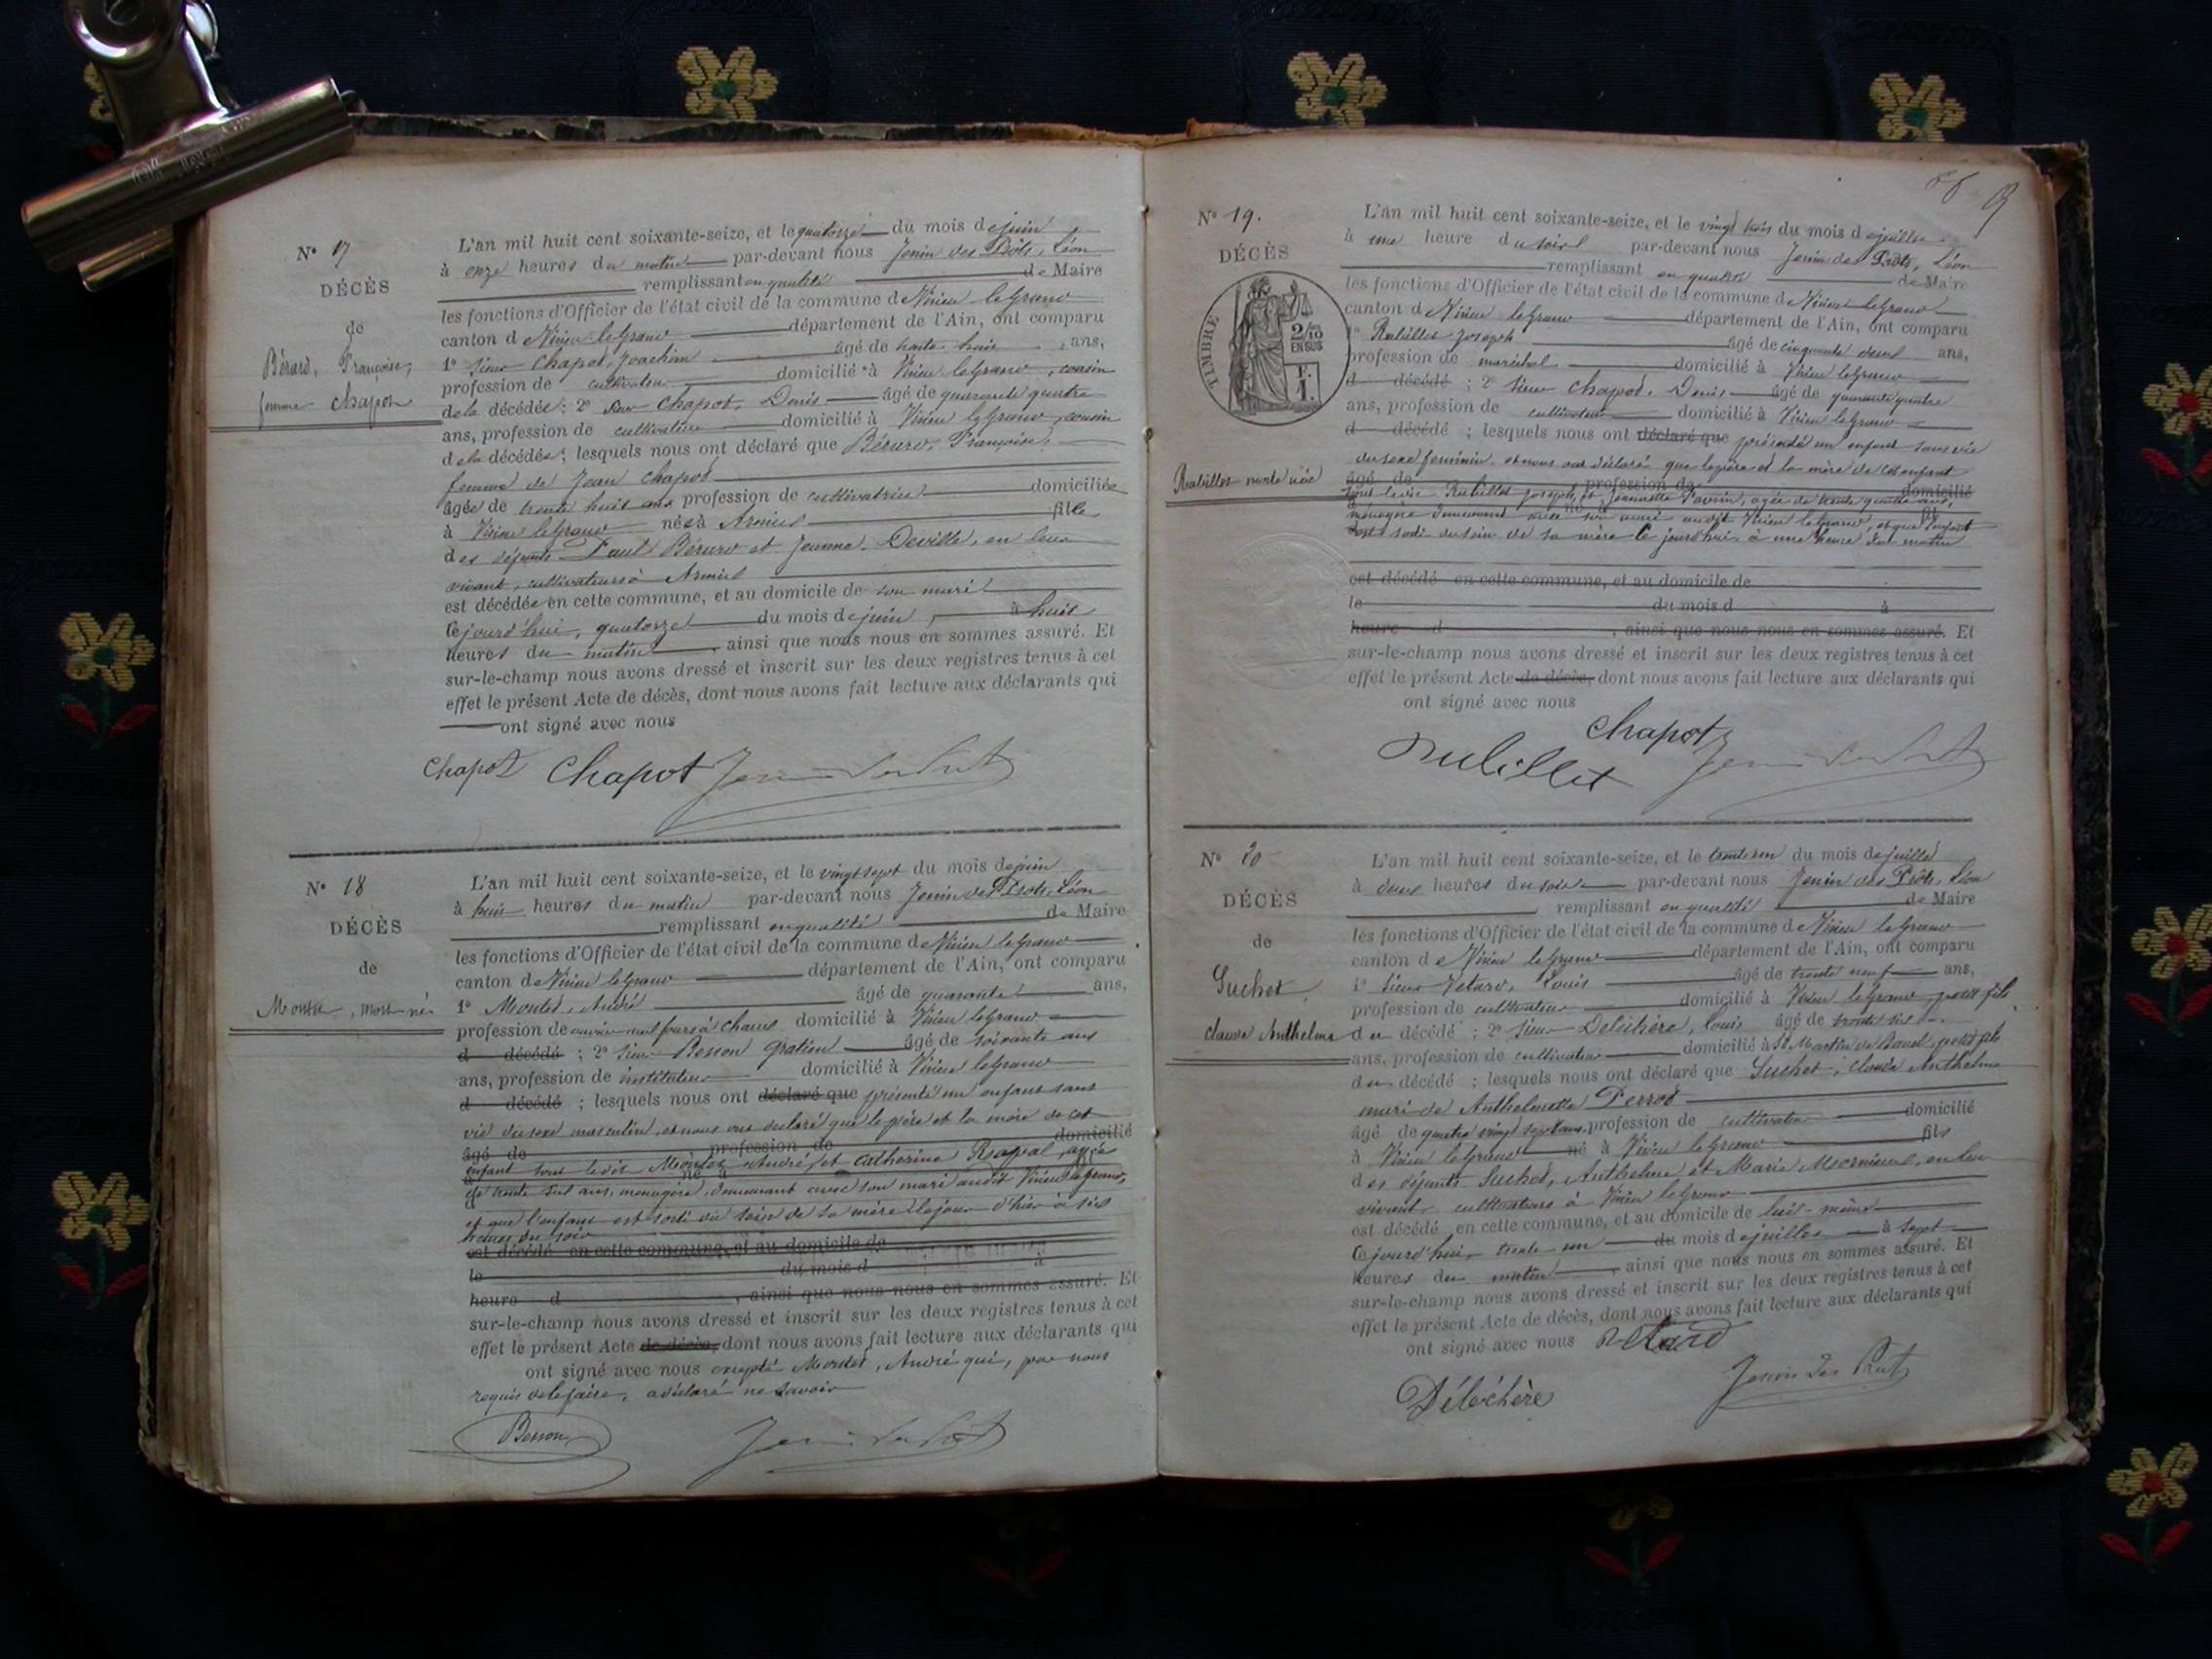 N° 17
DÉCÈS
de
Bérard, Françoise,
femme Chapot
L'an mil huit cent soixante-seize, et le quatorze du mois de juin
à onze heures du matin par-devant nous Jenin des Prôts, Léon
remplissant en qualité de Maire
les fonctions d'Officier de l'état civil de la commune de Virieu le Grand
canton de Virieu le Grand département de l'Ain, ont comparu
1° sieur Chapot, Joachim âgé de trente huit ans,
profession de cultivateur domicilié à Virieu le Grand, cousin
de la décédée ; 2° sieur Chapot, Denis âgé de quarante quatre
ans, profession de cultivateur domicilié à Virieu le Grand, cousin
de la décédée ; lesquels nous ont déclaré que Bérard, Françoise,
femme de Jean Chapot
âgée de trente huit ans profession de cultivatrice domiciliée
à Virieu le Grand née à Armix fille
des défunts Paul Bérard et Jeanne Deville, en leur
vivant, cultivateurs à Armix
est décédée en cette commune, et au domicile de son mari
ce jourd'hui, quatorze du mois de juin, à huit
heures du matin, ainsi que nous nous en sommes assuré. Et
sur-le-champ nous avons dressé et inscrit sur les deux registres tenus à cet
effet le présent Acte de décès, dont nous avons fait lecture aux déclarants qui
ont signé avec nous
Chapot Chapot Jenin des Prôts
N° 18
DÉCÈS
de
mort né
L'an mil huit cent soixante-seize, et le vingt sept du mois de juin
à huit heures du matin par-devant nous Jenin des Prôts, Léon
remplissant en qualité de Maire
les fonctions d'Officier de l'état civil de la commune de Virieu le Grand
canton de Virieu le Grand département de l'Ain, ont comparu
1° André âgé de quarante ans,
profession de ouvrier aux fours à chaux domicilié à Virieu le Grand
d décédé ; 2° sieur Besson Gratien âgé de soixante ans
ans, profession de instituteur domicilié à Virieu le Grand
d décédé ; lesquels nous ont déclaré que présenté un enfant sans
vie du sexe masculin, et nous ont déclaré que le père et la mère de cet
âgé de profession de domicilié
enfant sont le dit André, et Catherine âgée
à né à
de trente six ans, ménagère, demeurant avec son mari audit Virieu le Grand,
et que l'enfant est sorti du sein de sa mère le jour d'hier à six
heures du soir
est décédé en cette commune, et au domicile de
le du mois d à
heure d, ainsi que nous nous en sommes assuré. Et
sur-le-champ nous avons dressé et inscrit sur les deux registres tenus à cet
effet le présent Acte de décès, dont nous avons fait lecture aux déclarants qui
ont signé avec nous excepté André qui, par nous
requis de le faire, a déclaré ne savoir
Besson Jenin des Prôts
N° 19.
DÉCÈS
TIMBRE
2/10
EN SUS
F.
1.
Rubillet morte née
L'an mil huit cent soixante-seize, et le vingt trois du mois de juillet
à une heure du soir par-devant nous Jenin des Prôts, Léon
remplissant en qualité de Maire
les fonctions d'Officier de l'état civil de la commune de Virieu le Grand
canton de Virieu le Grand département de l'Ain, ont comparu
1° Rubillet Joseph âgé de cinquante deux ans,
profession de maréchal domicilié à Virieu le Grand
d décédé ; 2° sieur Chapot, Denis âgé de quarante quatre
ans, profession de cultivateur domicilié à Virieu le Grand
d décédé ; lesquels nous ont déclaré que présenté un enfant sans vie
du sexe féminin, et nous ont déclaré que le père et la mère de cet enfant
âgé de profession de domicilié
sont le dit Rubillet Joseph, et Jeannette âgée de trente quatre ans,
ménagère demeurant avec son mari audit Virieu le Grand, et que l'enfant
est sorti du sein de sa mère ce jourd'hui à une heure du matin
est décédé en cette commune, et au domicile de
le du mois d à
heure d, ainsi que nous nous en sommes assuré. Et
sur-le-champ nous avons dressé et inscrit sur les deux registres tenus à cet
effet le présent Acte de décès, dont nous avons fait lecture aux déclarants qui
ont signé avec nous
Chapot
Rubillet Jenin des Prôts
N° 20
DÉCÈS
de
Suchet,
Claude Anthelme
L'an mil huit cent soixante-seize, et le trente un du mois de juillet
à deux heures du soir par-devant nous Jenin des Prôts, Léon
remplissant en qualité de Maire
les fonctions d'Officier de l'état civil de la commune de Virieu le Grand
canton de Virieu le Grand département de l'Ain, ont comparu
1° sieur Vetard, Louis âgé de trente neuf ans,
profession de cultivateur domicilié à Virieu le Grand petit fils
du décédé ; 2° sieur Deléchère, Louis âgé de trente six
ans, profession de cultivateur domicilié à St Martin de Bavel, petit fils
du décédé ; lesquels nous ont déclaré que Suchet, Claude Anthelme
mari de Anthelmette Perrod
âgé de quatre vingt sept ans, profession de cultivateur domicilié
à Virieu le Grand né à Virieu le Grand fils
des défunts Suchet, Anthelme et Marie en leur
vivant, cultivateurs à Virieu le Grand
est décédé en cette commune, et au domicile de lui-même
ce jourd'hui, trente-un du mois de juillet à sept
heures du matin, ainsi que nous nous en sommes assuré. Et
sur-le-champ nous avons dressé et inscrit sur les deux registres tenus à cet
effet le présent Acte de décès, dont nous avons fait lecture aux déclarants qui
ont signé avec nous Vetard
Déléchère Jenin des Prôts